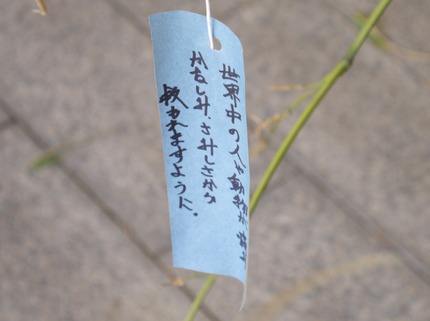 世界中の人や動物が
かなしみ、さみしさから
救われますように。